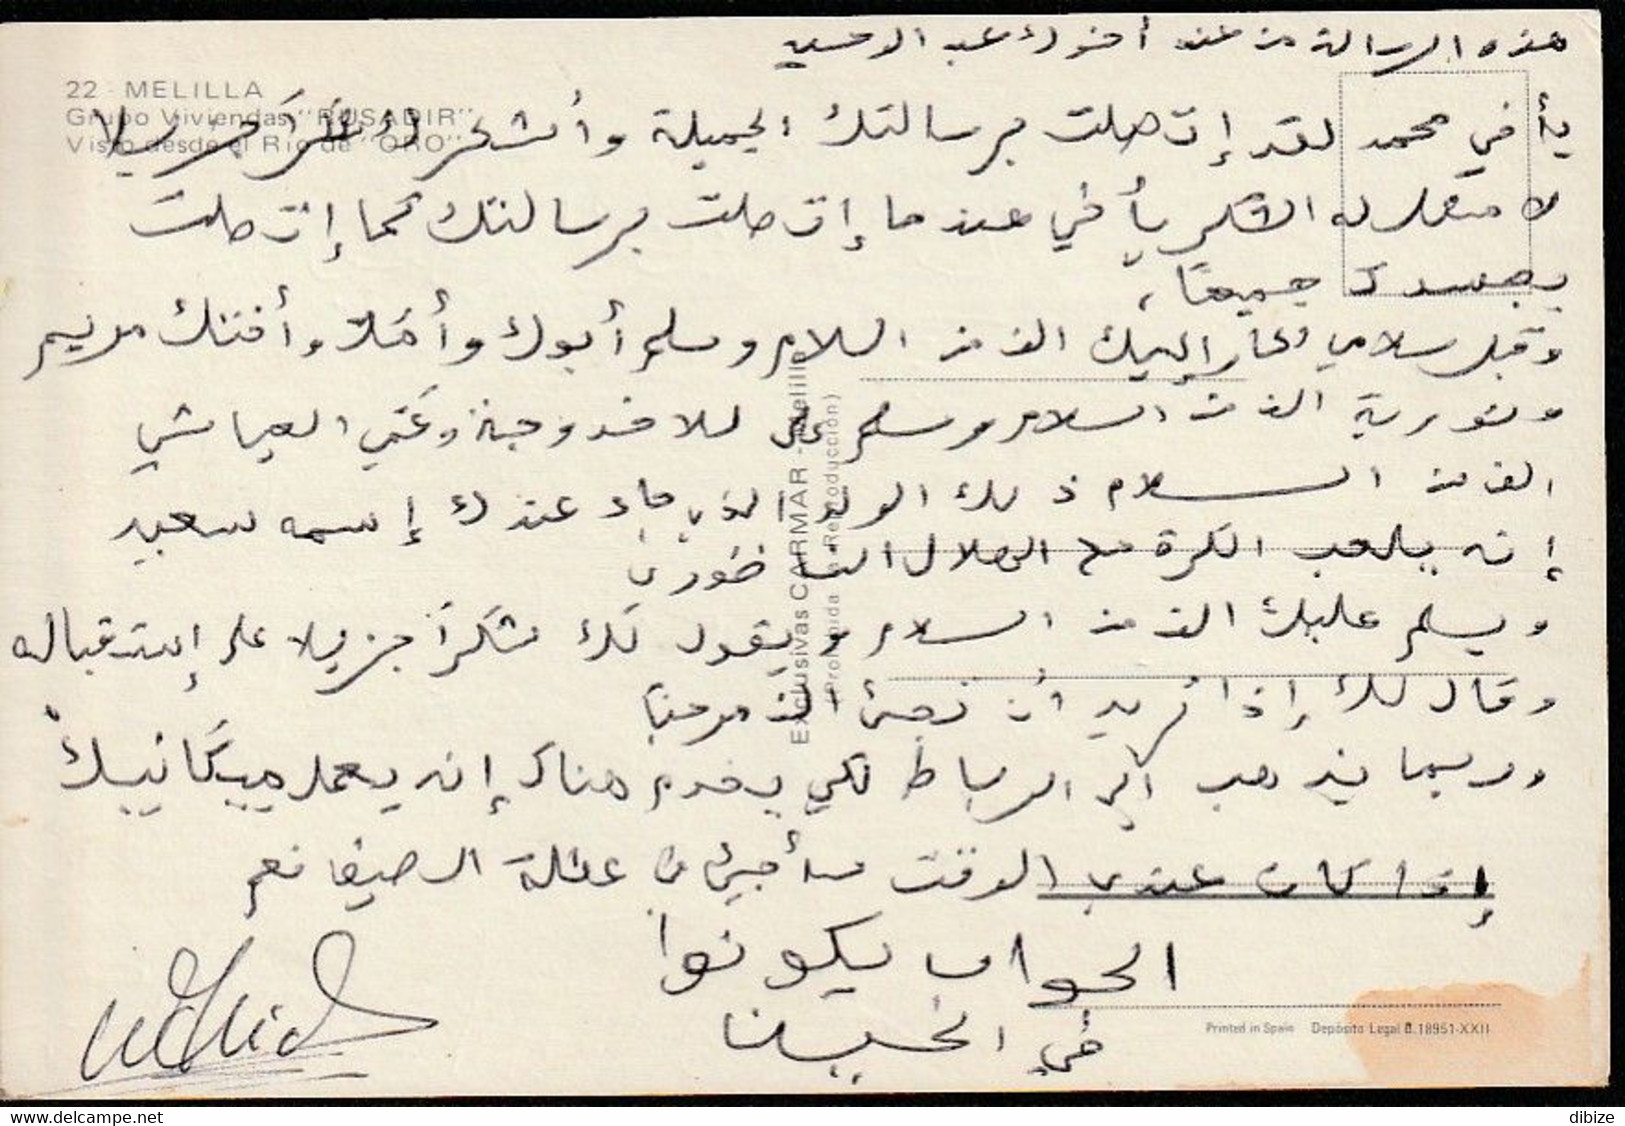 هذه الرسالة من عند أخوك عبد الوحسين
22 - MELILLA
Grupo Viviendas "RUSADIR"
Visto desde el Rio de "ORO"
يأخي محمد لقد إتصلت برسالتك الجميلة وأشكرك شكراً جزيلا
لا مثل له الاكر يأخي عندما إتصلت برسالتك كما إتصلت
بجسدك جميعاً،
وقبل سلامي الحار إليك الذ من السلام وسلم أبوك وأمك وأختك مريم
ونورية الذ من السلام وسلم على للاخدوجة وعمي العياشي
الذ من السلام ذلك الولد الذي جاء عندك إسمه سعيد
إنه يلعب الكرة مع الهلال الناظوري
ويسلم عليك الذ من السلام ويقول لك شكراً جزيلا على إستقباله
وقال لك إذا تريد أن تجئ الذ مرحبا
وربما يذهب الى الرباط لكي يخدم هناك إنه يعمل ميكانييك
إذا كان عندي الوقت سأجيئ في عطلة الصيف نعم
الجواب يكونوا
في الحسين
Exclusivas CARMAR - Melilla
(Prohibida la Reproducción)
Printed in Spain Depósito Legal B. 18951-XXII
dibize